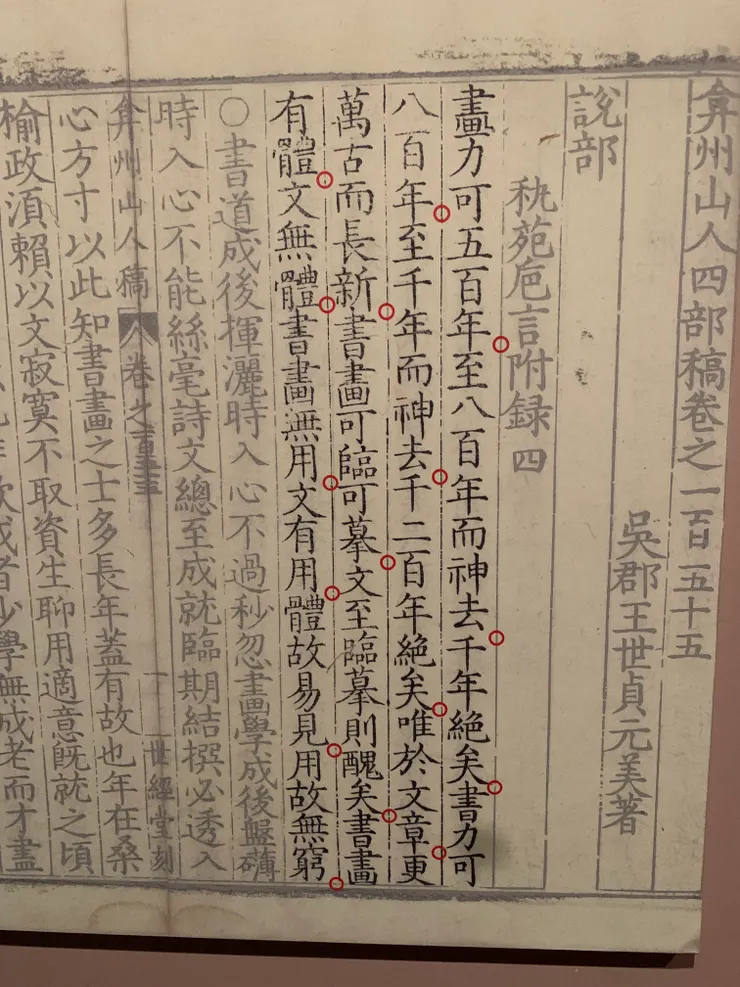 弇州山人四部稿卷之一百五十五
吳郡王世貞元美著
說部
秇苑巵言附録四
畫力可五百年至八百年而神去千年絶矣書力可
八百年至千年而神去千二百年絶矣唯於文章更
萬古而長新書畫可臨可摹文至臨摹則醜矣書畫
有體文無體書畫無用文有用體故易見用故無窮
○書道成後揮灑時入心不過秒忽畫學成後盤礴
時入心不能絲毫詩文總至成就臨期結撰必透入
弇州山人稿 卷之 一 世經堂刻
心方寸以此知書畫之士多長年蓋有故也年在桑
榆政湏賴以文寂寞不取資生聊用適意旣就之頃
學無成老而才盡